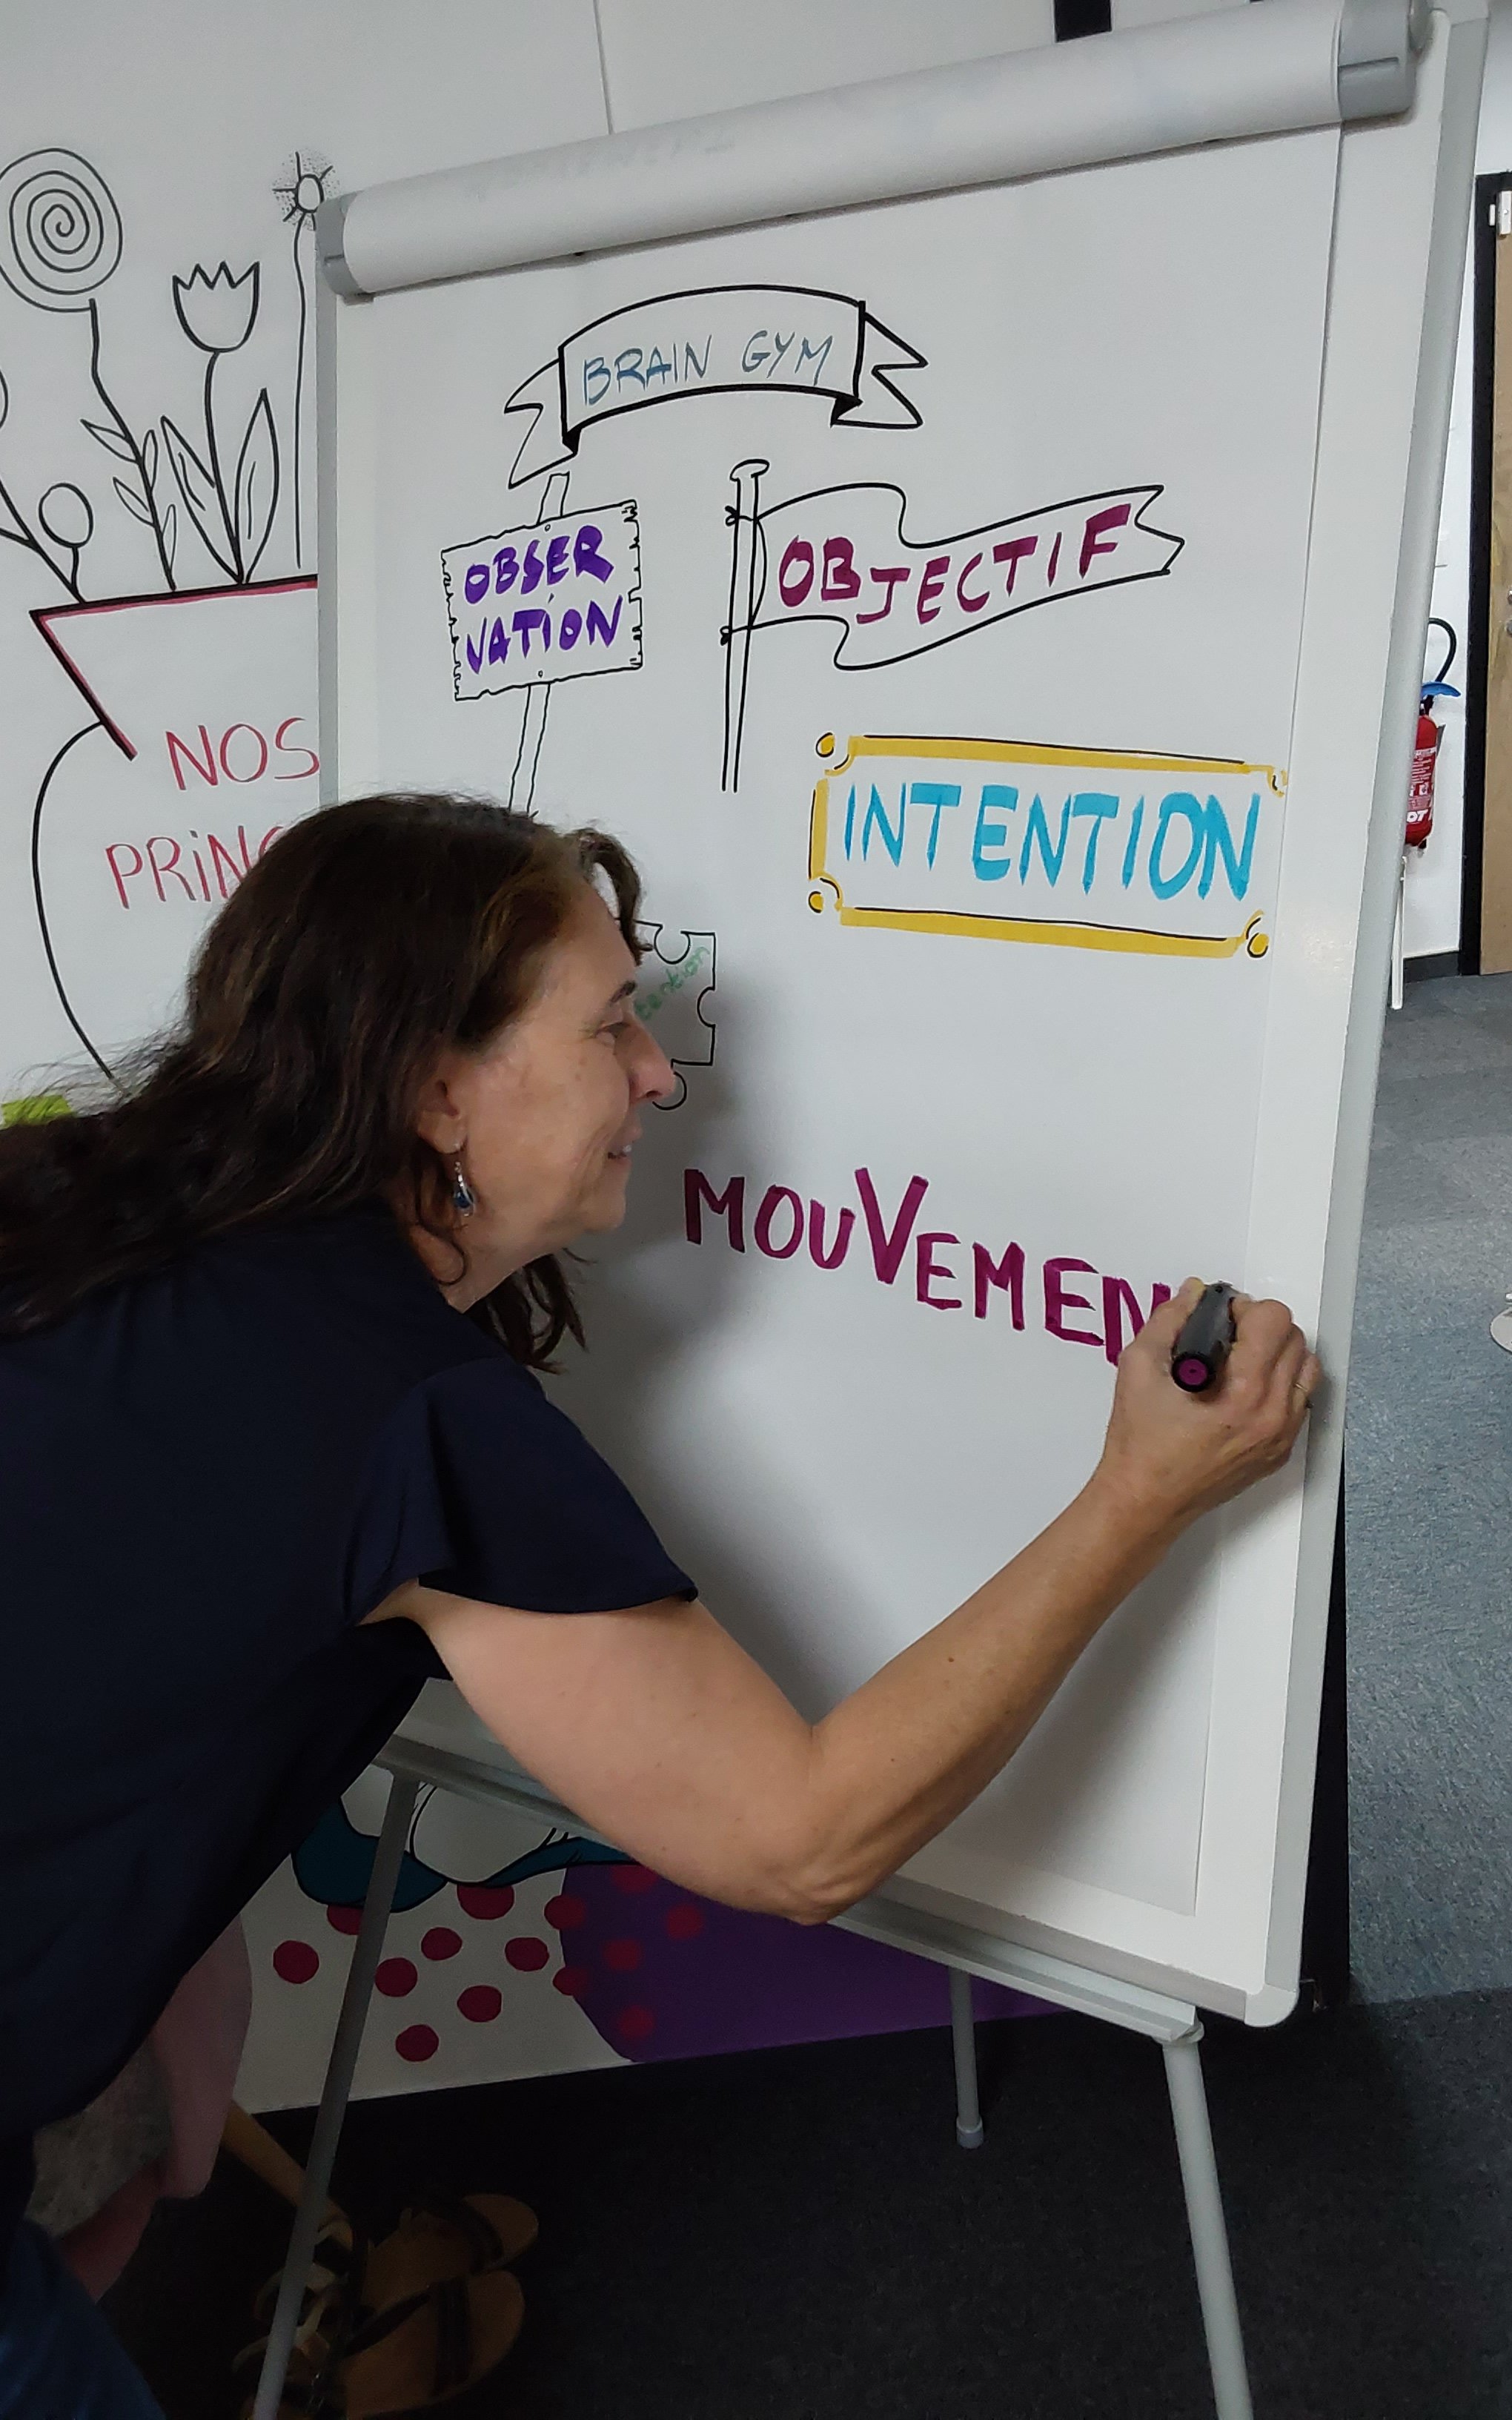 BRAIN GYM
OBSER
VATION
OBJECTIF
INTENTION
NOS
MOUVEMEN